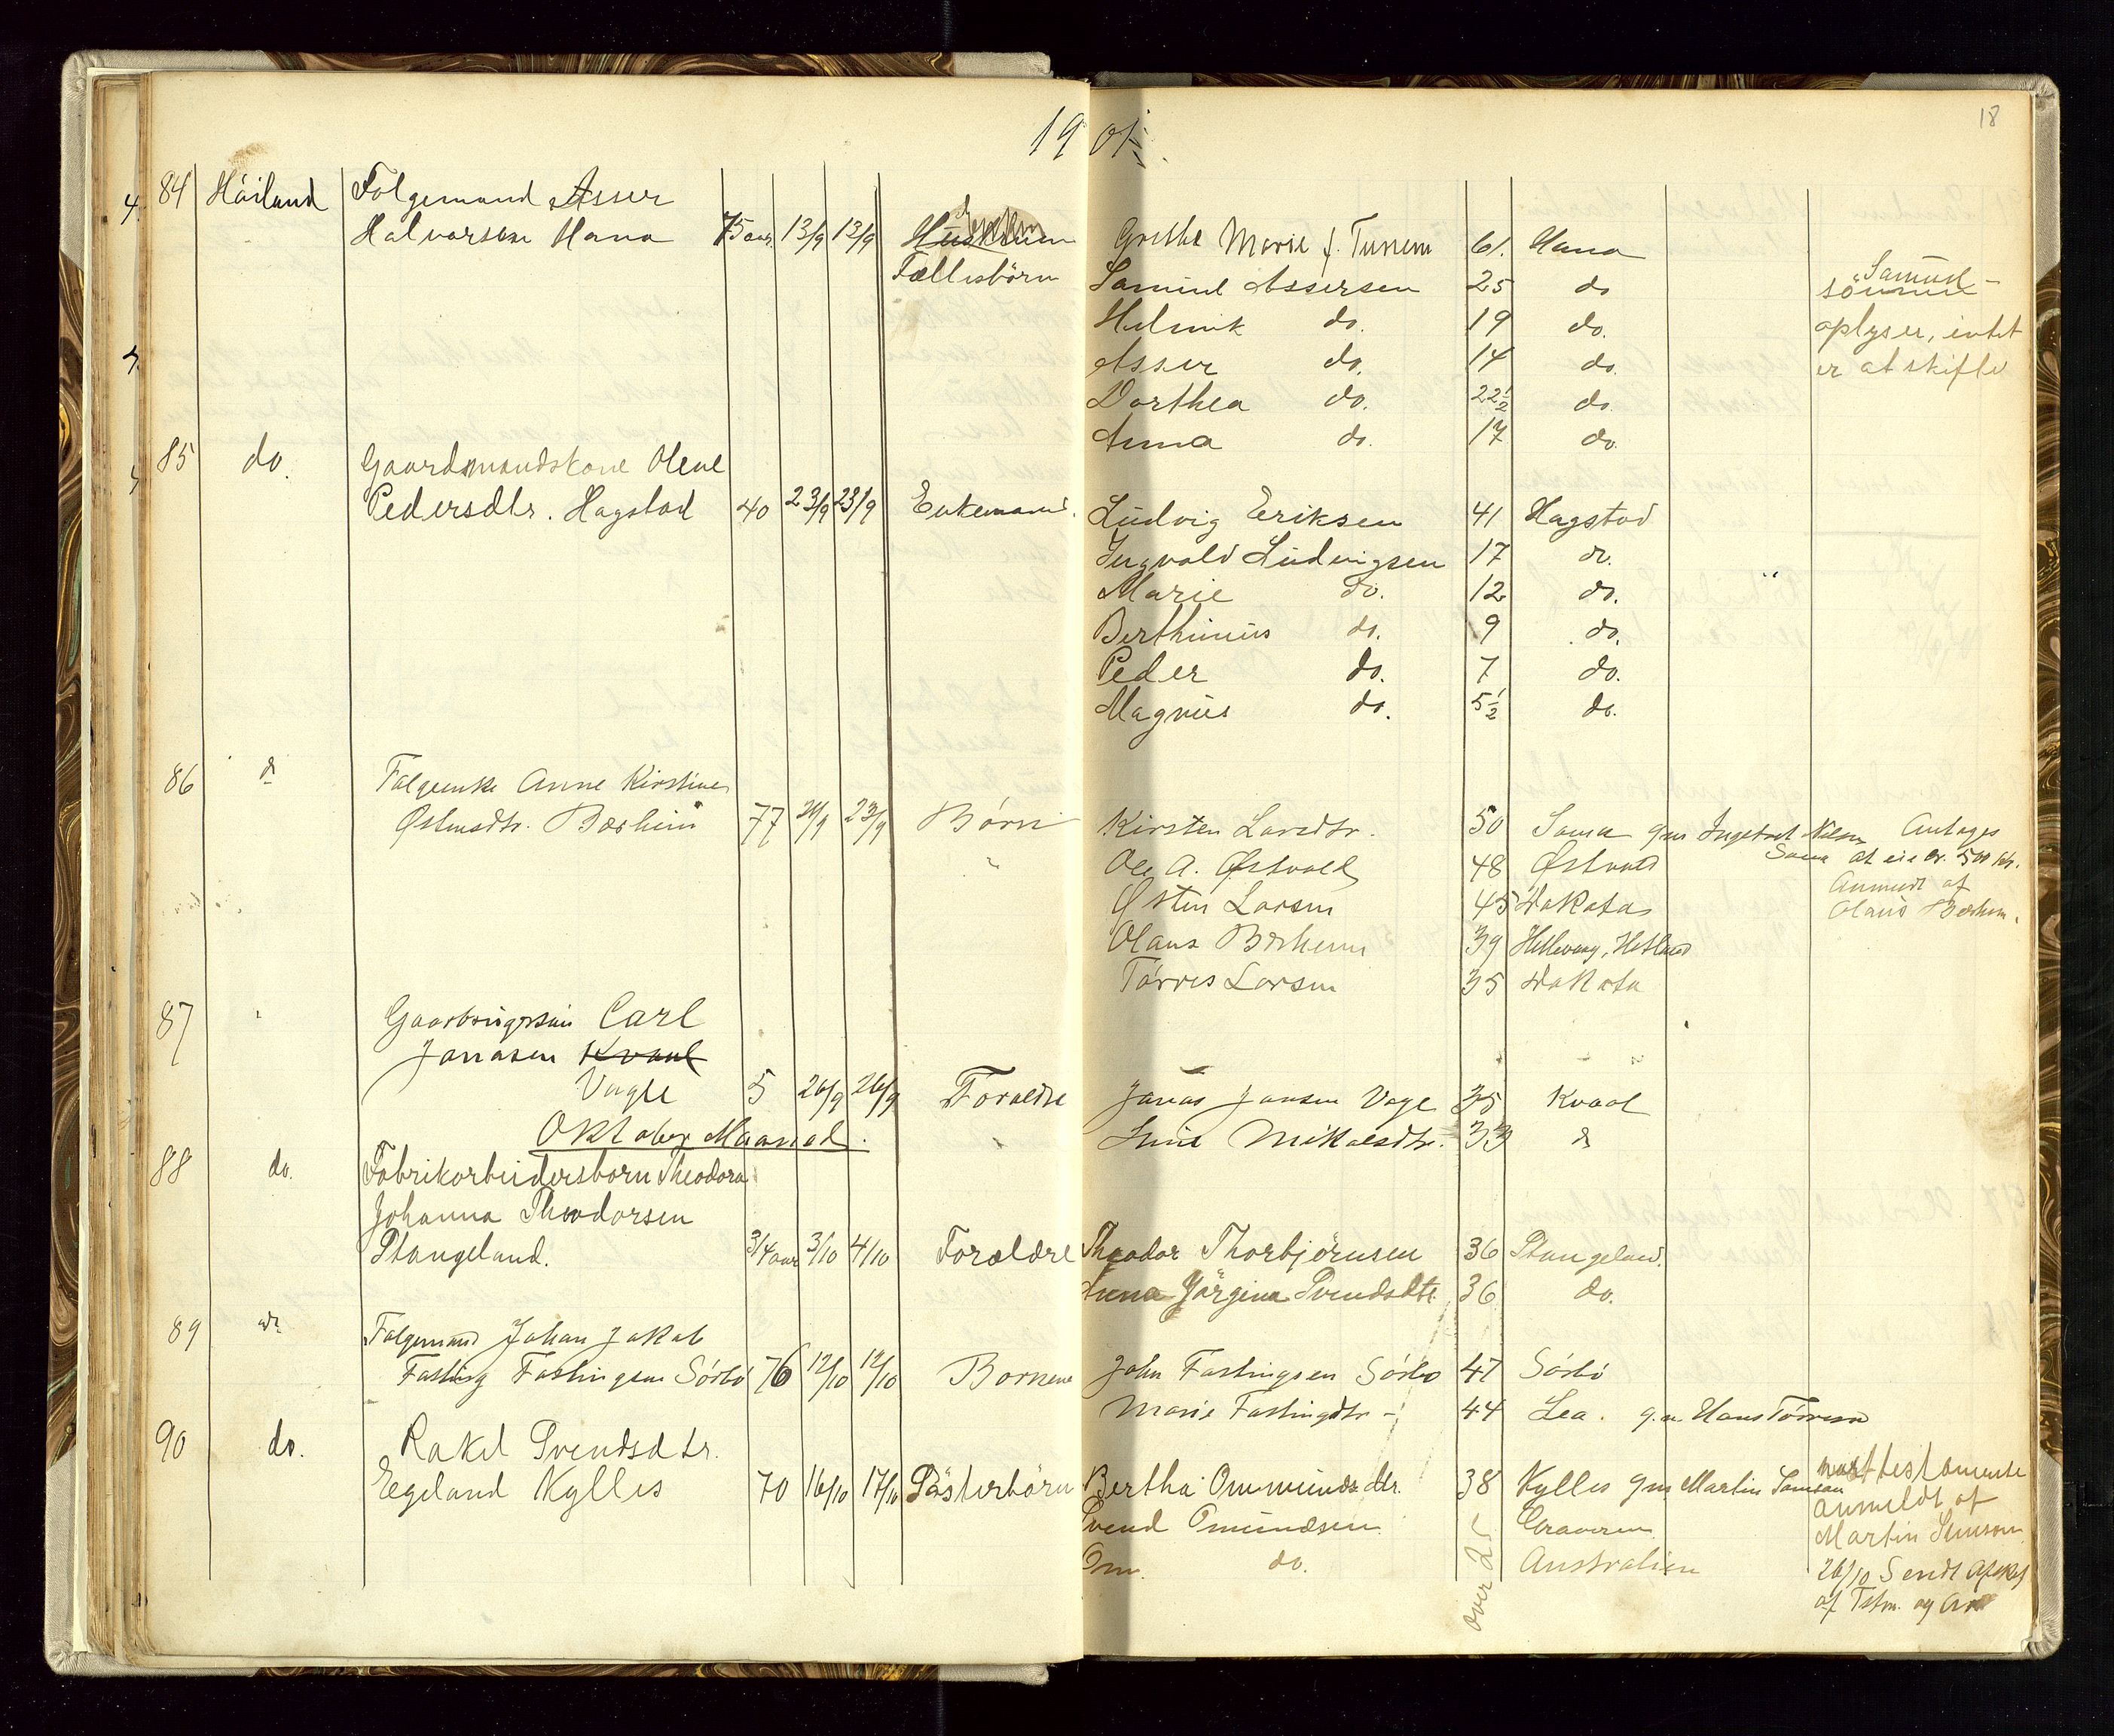 1901
18
84 Höiland Folgemand Asser
Halvorsen Hana 75 aar 13/9 13/9 Enken Grethe Marie f. Tunem 61. Hana
Fællesbörn Samuel Assersen 25 do Samuel
Helmik do. 19 do. oplyser, intet
Asser do. 14 do. er at skifte
Dorthea do. 22½ do.
Anna do. 17 do.
85 do. Gaardmandskone Olene
Pedersdtr. Hagstad 40 23/9 23/9 Enkemand. Ludvig Eriksen 41 Hagstad
Ingvald Ludvigsen 17 do.
Marie do. 12 do.
Berthinius do. 9 do.
Peder do. 7 do.
Magnus do. 5½ do.
86 do Folgeenke Anne Kirstine
Østensdtr. Bærheim 77 20/9 23/9 Børn Kirsten Larsdtr. 50 Soma gm Ingebret Nilsen Antages
Soma at eie ca. 500 Kr.
Ole A. Østvold 48 Østvold
Anmeldt af
Østen Larsen 45 Dakota Olaus Bærheim.
Olaus Bærheim 39 Hillevaag, Hetland
Tórres Larsen 35 Dakota
87 Gaardbrugersøn Carl
Jonasen Kvaal
Vagle 5 26/9 26/9 Forældre Jonas Jonsen Vagle 35 Kvaal
Oktober Maaned. Mikalsdtr. 33 do
88 do. Fabrikarbeidersbarn Theodora
Johanna Theodorsen
Stangeland. 3/4 aar 3/10 4/10 Forældre Theodor Thorbjörnsen 36 Stangeland.
Anna Görgina Svendsdtr. 36 do.
89 do. Folgemand Johan Jakob
Fasting Fastingsen Sörbö 76 12/10 12/10 Børnene John Fastingsen Sörbö 47 Sórbö
Marie Fastingdtr - 44 Lea. g.m. Hans Tórresen
90 do. Rakel Svendsdtr.
Egeland Kylles 70 16/10 17/10 Pösterbörn Bertha Ommundsdtr. 38 Kylles gm Martin Samson testamente
anmeldt af
Svend Omundsen over 25 Graveren Martin Simson
Om. do. Australien 26/10 Sendt Afskr.
af Tstm. og